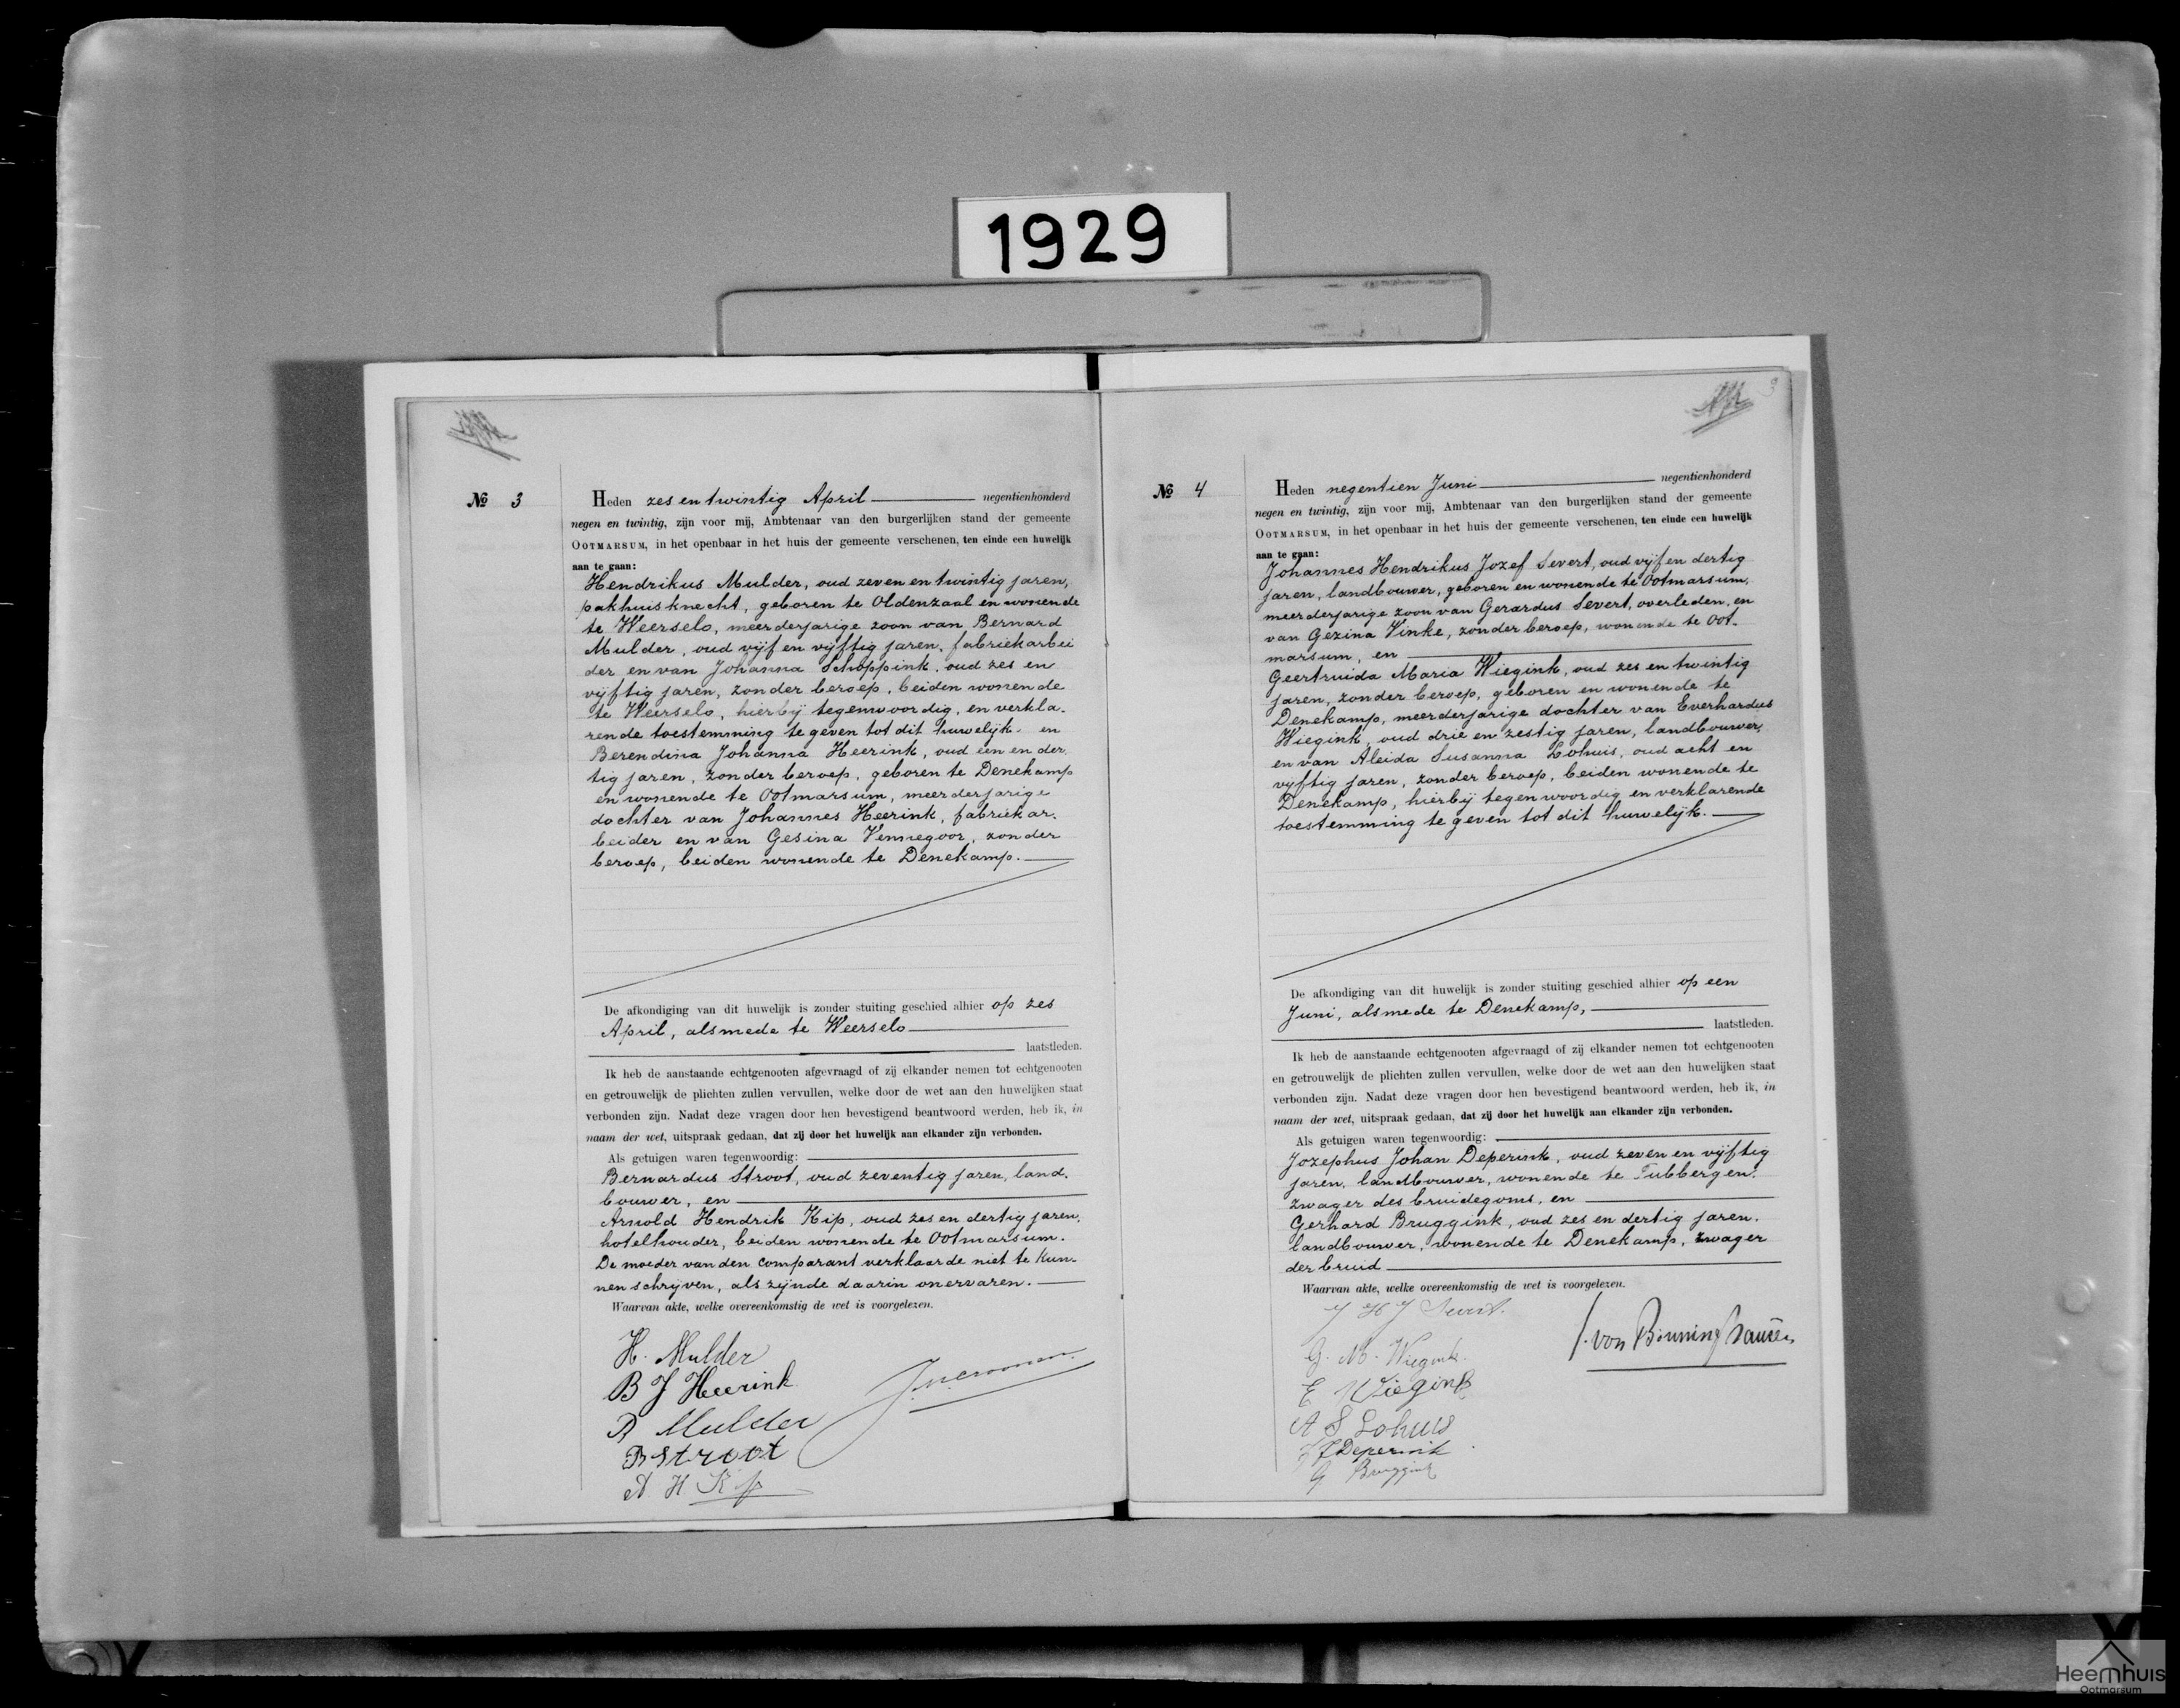 1929
No 3
Heden zes en twintig April negentienhonderd
negen en twintig, zijn voor mij, Ambtenaar van den burgerlijken stand der gemeente
OOTMARSUM, in het openbaar in het huis der gemeente verschenen, ten einde een huwelijk
aan te gaan:
Hendrikus Mulder, oud zeven en twintig jaren,
pakhuisknecht, geboren te Oldenzaal en wonende
te Weerselo, meerderjarige zoon van Bernard
Mulder, oud vijf en vijftig jaren, fabriekarbei
der en van Johanna Schoppink, oud zes en
vijftig jaren, zonder beroep, beiden wonende
te Weerselo, hierbij tegenwoordig, en verkla-
rende toestemming te geven tot dit huwelijk. en
Berendina Johanna Heerink, oud een en der-
tig jaren, zonder beroep, geboren te Denekamp
en wonende te Ootmarsum, meerderjarige
dochter van Johannes Heerink, fabriekar-
beider en van Gesina Vennegoor, zonder
beroep, beiden wonende te Denekamp.
De afkondiging van dit huwelijk is zonder stuiting geschied alhier op zes
April, alsmede te Weerselo
laatstleden.
Ik heb de aanstaande echtgenooten afgevraagd of zij elkander nemen tot echtgenooten
en getrouwelijk de plichten zullen vervullen, welke door de wet aan den huwelijken staat
verbonden zijn. Nadat deze vragen door hen bevestigend beantwoord werden, heb ik, in
naam der wet, uitspraak gedaan, dat zij door het huwelijk aan elkander zijn verbonden.
Als getuigen waren tegenwoordig:
Bernardus Stroot, oud zeventig jaren, land-
bouwer, en
Arnold Hendrik Kip, oud zes en dertig jaren,
hotelhouder, beiden wonende te Ootmarsum.
De moeder van den comparant verklaarde niet te kun-
nen schrijven, als zijnde daarin onervaren.
Waarvan akte, welke overeenkomstig de wet is voorgelezen.
H. Mulder
B J Heerink
B Mulder
B Stroot
A. H. Kip
3
No 4
Heden negentien Juni negentienhonderd
negen en twintig, zijn voor mij, Ambtenaar van den burgerlijken stand der gemeente
OOTMARSUM, in het openbaar in het huis der gemeente verschenen, ten einde een huwelijk
aan te gaan:
Johannes Hendrikus Jozef Severt, oud vijf en dertig
jaren, landbouwer, geboren en wonende te Ootmarsum,
meerderjarige zoon van Gerardus Severt, overleden, en
van Gezina Vinke, zonder beroep, wonende te Oot-
marsum, en
Geertruida Maria Wiegink, oud zes en twintig
jaren, zonder beroep, geboren en wonende te
Denekamp, meerderjarige dochter van Everhardus
Wiegink, oud drie en zestig jaren, landbouwer,
en van Aleida Susanna Lohuis, oud acht en
vijftig jaren, zonder beroep, beiden wonende te
Denekamp, hierbij tegenwoordig en verklarende
toestemming te geven tot dit huwelijk.
De afkondiging van dit huwelijk is zonder stuiting geschied alhier op een
Juni, alsmede te Denekamp,
laatstleden.
Ik heb de aanstaande echtgenooten afgevraagd of zij elkander nemen tot echtgenooten
en getrouwelijk de plichten zullen vervullen, welke door de wet aan den huwelijken staat
verbonden zijn. Nadat deze vragen door hen bevestigend beantwoord werden, heb ik, in
naam der wet, uitspraak gedaan, dat zij door het huwelijk aan elkander zijn verbonden.
Als getuigen waren tegenwoordig:
Jozephus Johan Deperink, oud zeven en vijftig
jaren, landbouwer, wonende te Tubbergen,
zwager des bruidegoms, en
Gerhard Bruggink, oud zes en dertig jaren,
landbouwer, wonende te Denekamp, zwager
der bruid
Waarvan akte, welke overeenkomstig de wet is voorgelezen.
J H J Severt.
G. M. Wiegink.
E Wiegink
A S Lohuis
J J Deperink
G Bruggink
von Bönninghausen
Heemhuis
Ootmarsum